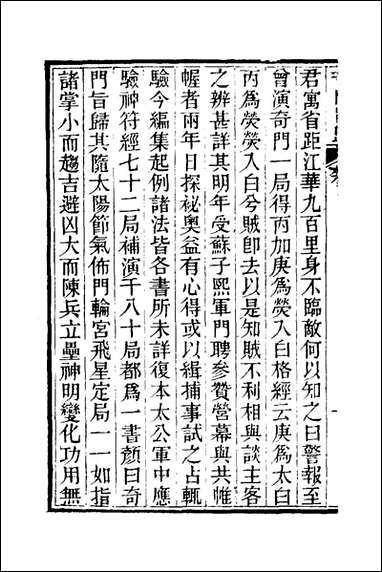 君寓省距江華九百里身不臨敵何以知之曰警報至
曾演奇門一局得丙加庚為熒入白格經云庚為太白
丙為熒熒入白兮賊卽去以是知賊不利相與談主客
之辨甚詳其明年受蘇子熙軍門聘參贊營幕與共帷
幄者兩年日探祕奧益有心得或以緝捕事試之占輒
驗今編集起例諸法皆各書所未詳復本太公軍中應
驗神符經七十二局補演千八十局都為一書顏曰奇
門旨歸其隨太陽節氣佈門輪宮飛星定局一一如指
諸掌小而趨吉避凶大而陳兵立壘神明變化功用無